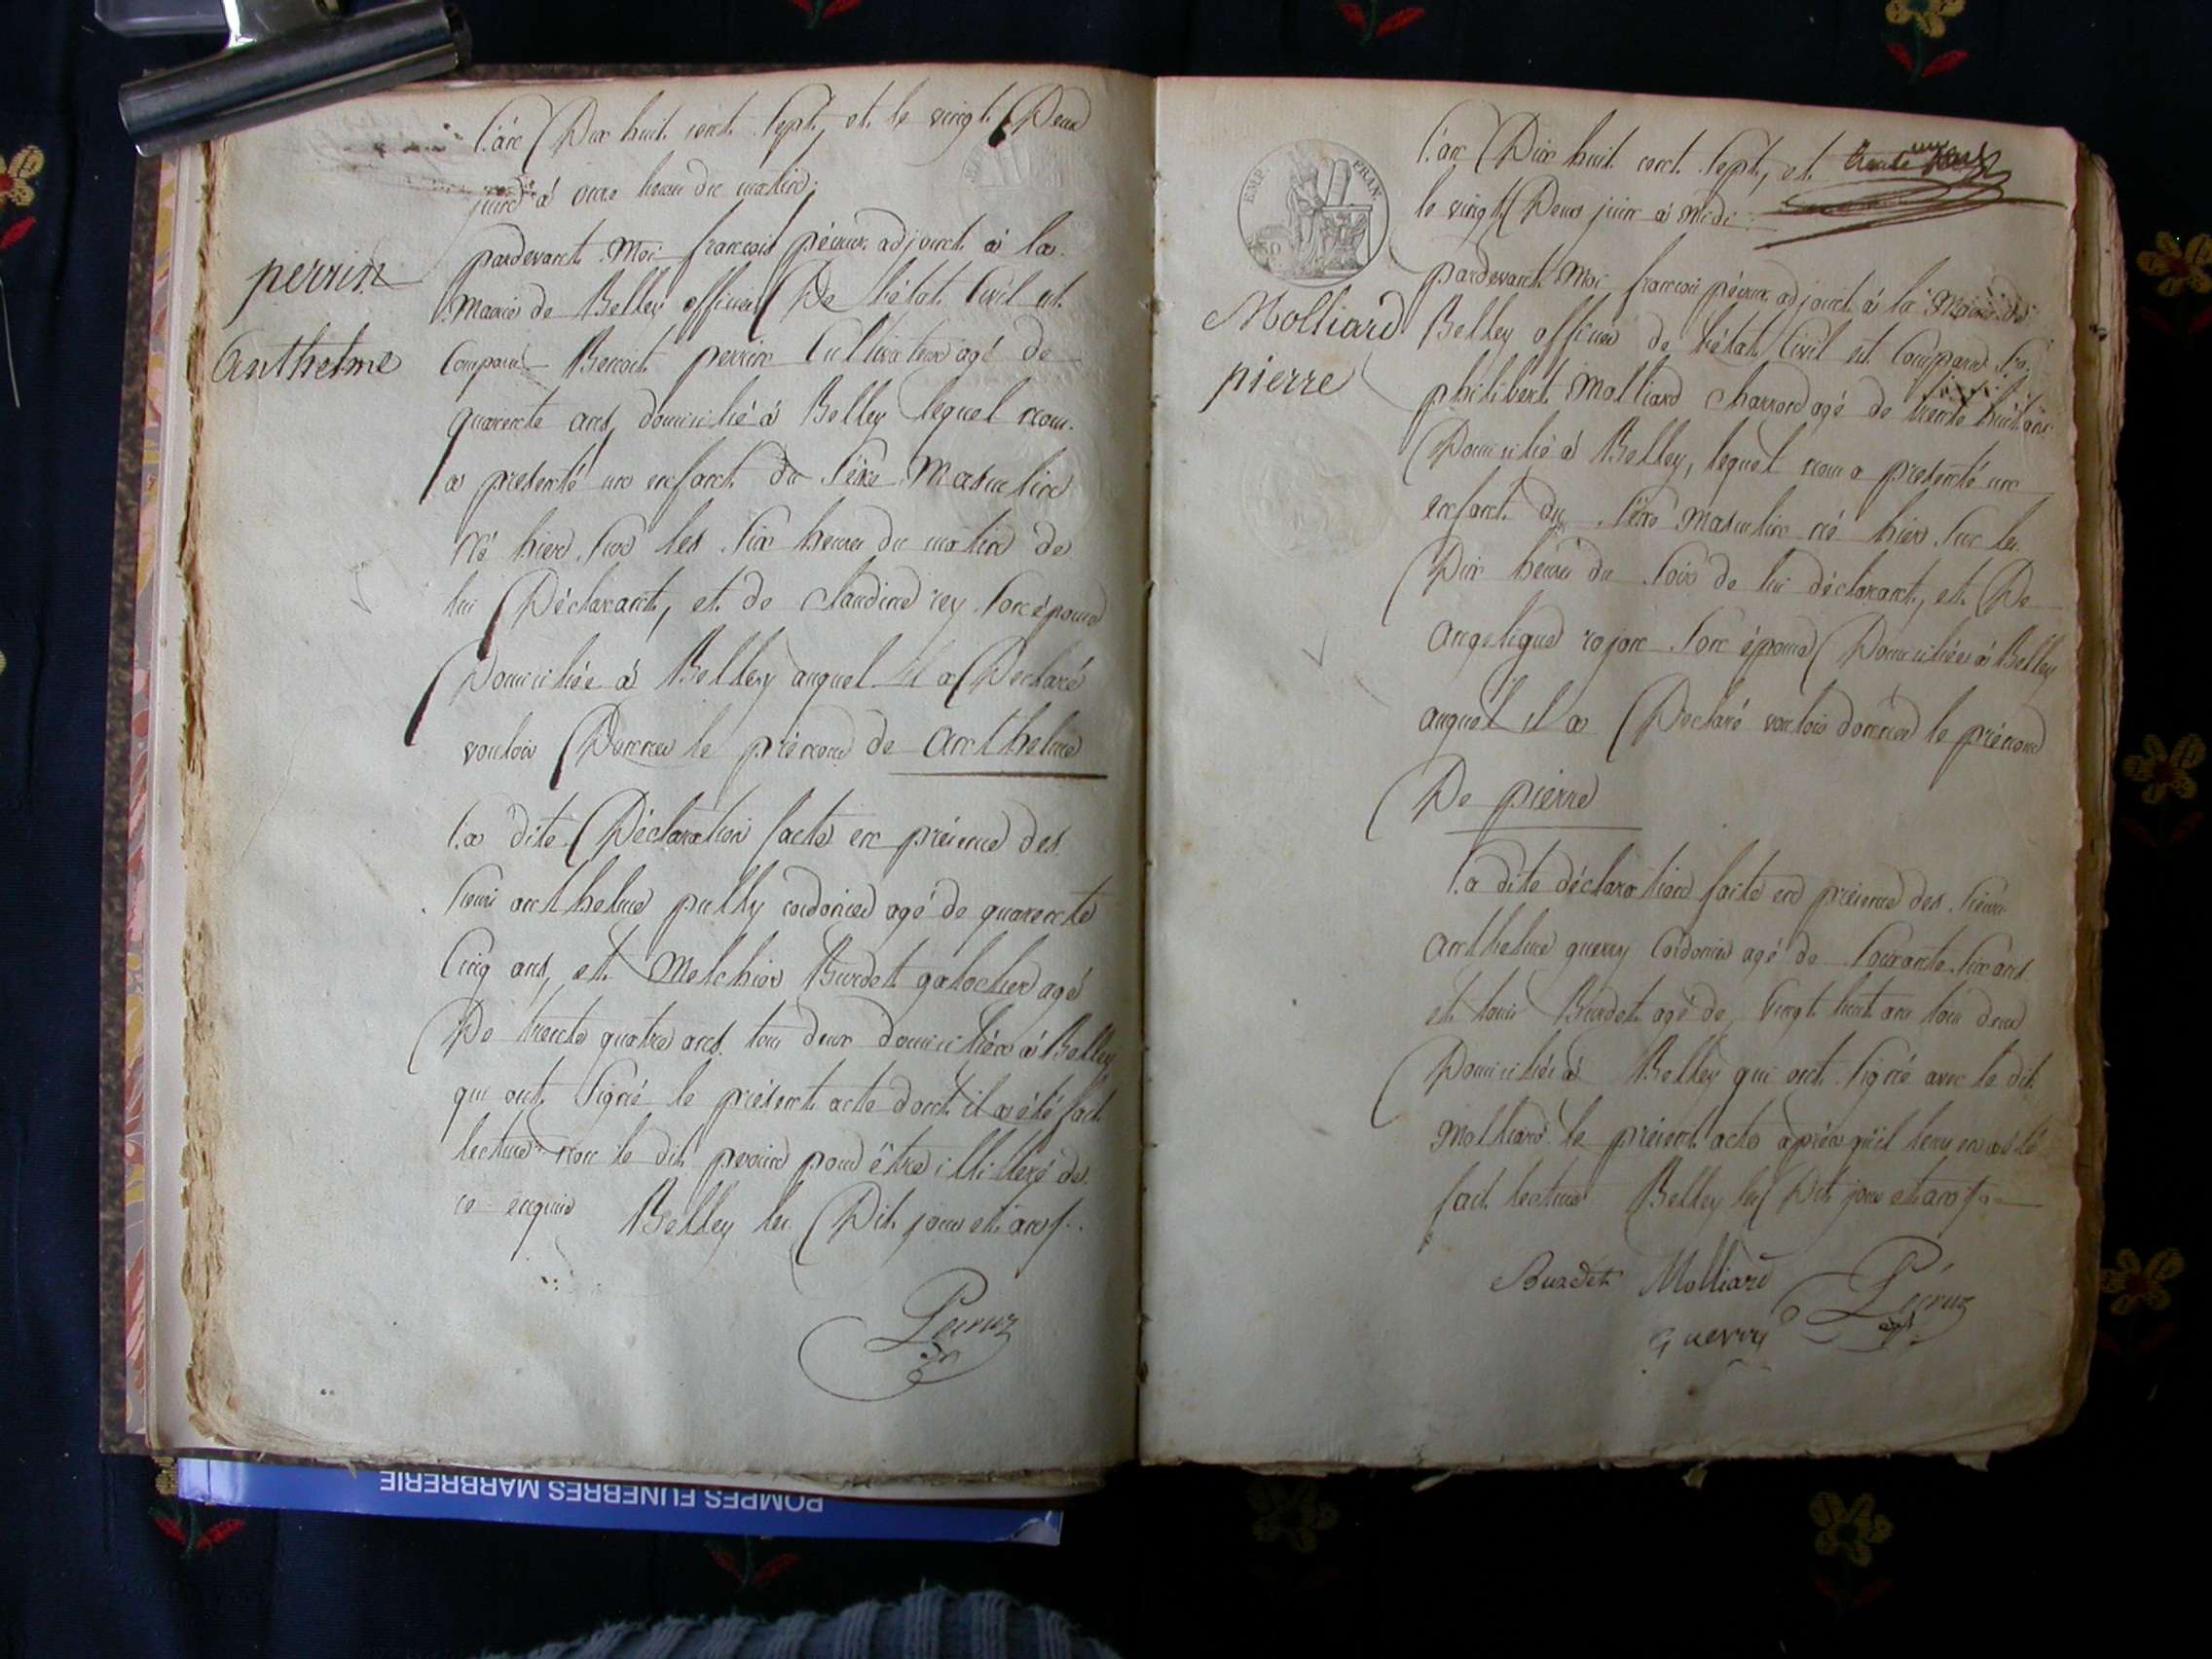 L'an Dix huit cent Sept, et le vingt Deux
juin à onze heure du matin;
pardevant Moi françois pécruz adjoinct à la
Mairie de Belley officier De l'état Civil est
Comparu Benoit perrin Cultivateur agé de
quarente ans, domicilié à Belley lequel nous
a presenté un enfant du Séxe Masculin
né hier Sur les Six heures du matin de
lui Déclarant, et de claudine rey Son épouse
Domiciliée à Belley auquel il a Declaré
vouloir Donner le prénom de anthelme
La dite Déclaration faite en présence des
Sieurs anthelme pully cordonier agé de quarente
Cinq ans, et Melchior Burdet galochier agé
De trente quatre ans tous deux domiciliés à Belley
qui ont Signé le présent acte dont il a été fait
lecture non le dit perrin pour être illitteré de
ce enquis Belley les Dit jour et an
Pécruz
perrin
Anthelme
EMP. FRAN.
L'an Dix huit cent Sept, et
le vingt Deux juin à midi
pardevant Moi francois pécruz adjoint à la Mairie de
Belley officier de l'état Civil est Comparu
philibert Molliard charron agé de trente huit ans
Domicilié à Belley, lequel nous a presenté un
enfant du Séxe masculin né hier Sur les
Dix heures du Soir de lui déclarant, et De
angelique rojon Son épouse Domiciliée à Belley
auquel il a Declaré vouloir donner le prénom
De pierre
La dite déclaration faite en présence des Sieurs
anthelme guerry Cordonier agé de Soixante Six ans
et louis Burdet agé de vingt huit ans tous deux
Domiciliés à Belley qui ont Signé avec le dit
Molliard le présent acte après qu'il leur en a été
fait lecture Belley les Dit jour et an
Burdet Molliard Pécruz
guerry
Molliard
pierre
POMPES FUNEBRES MARBRERIE